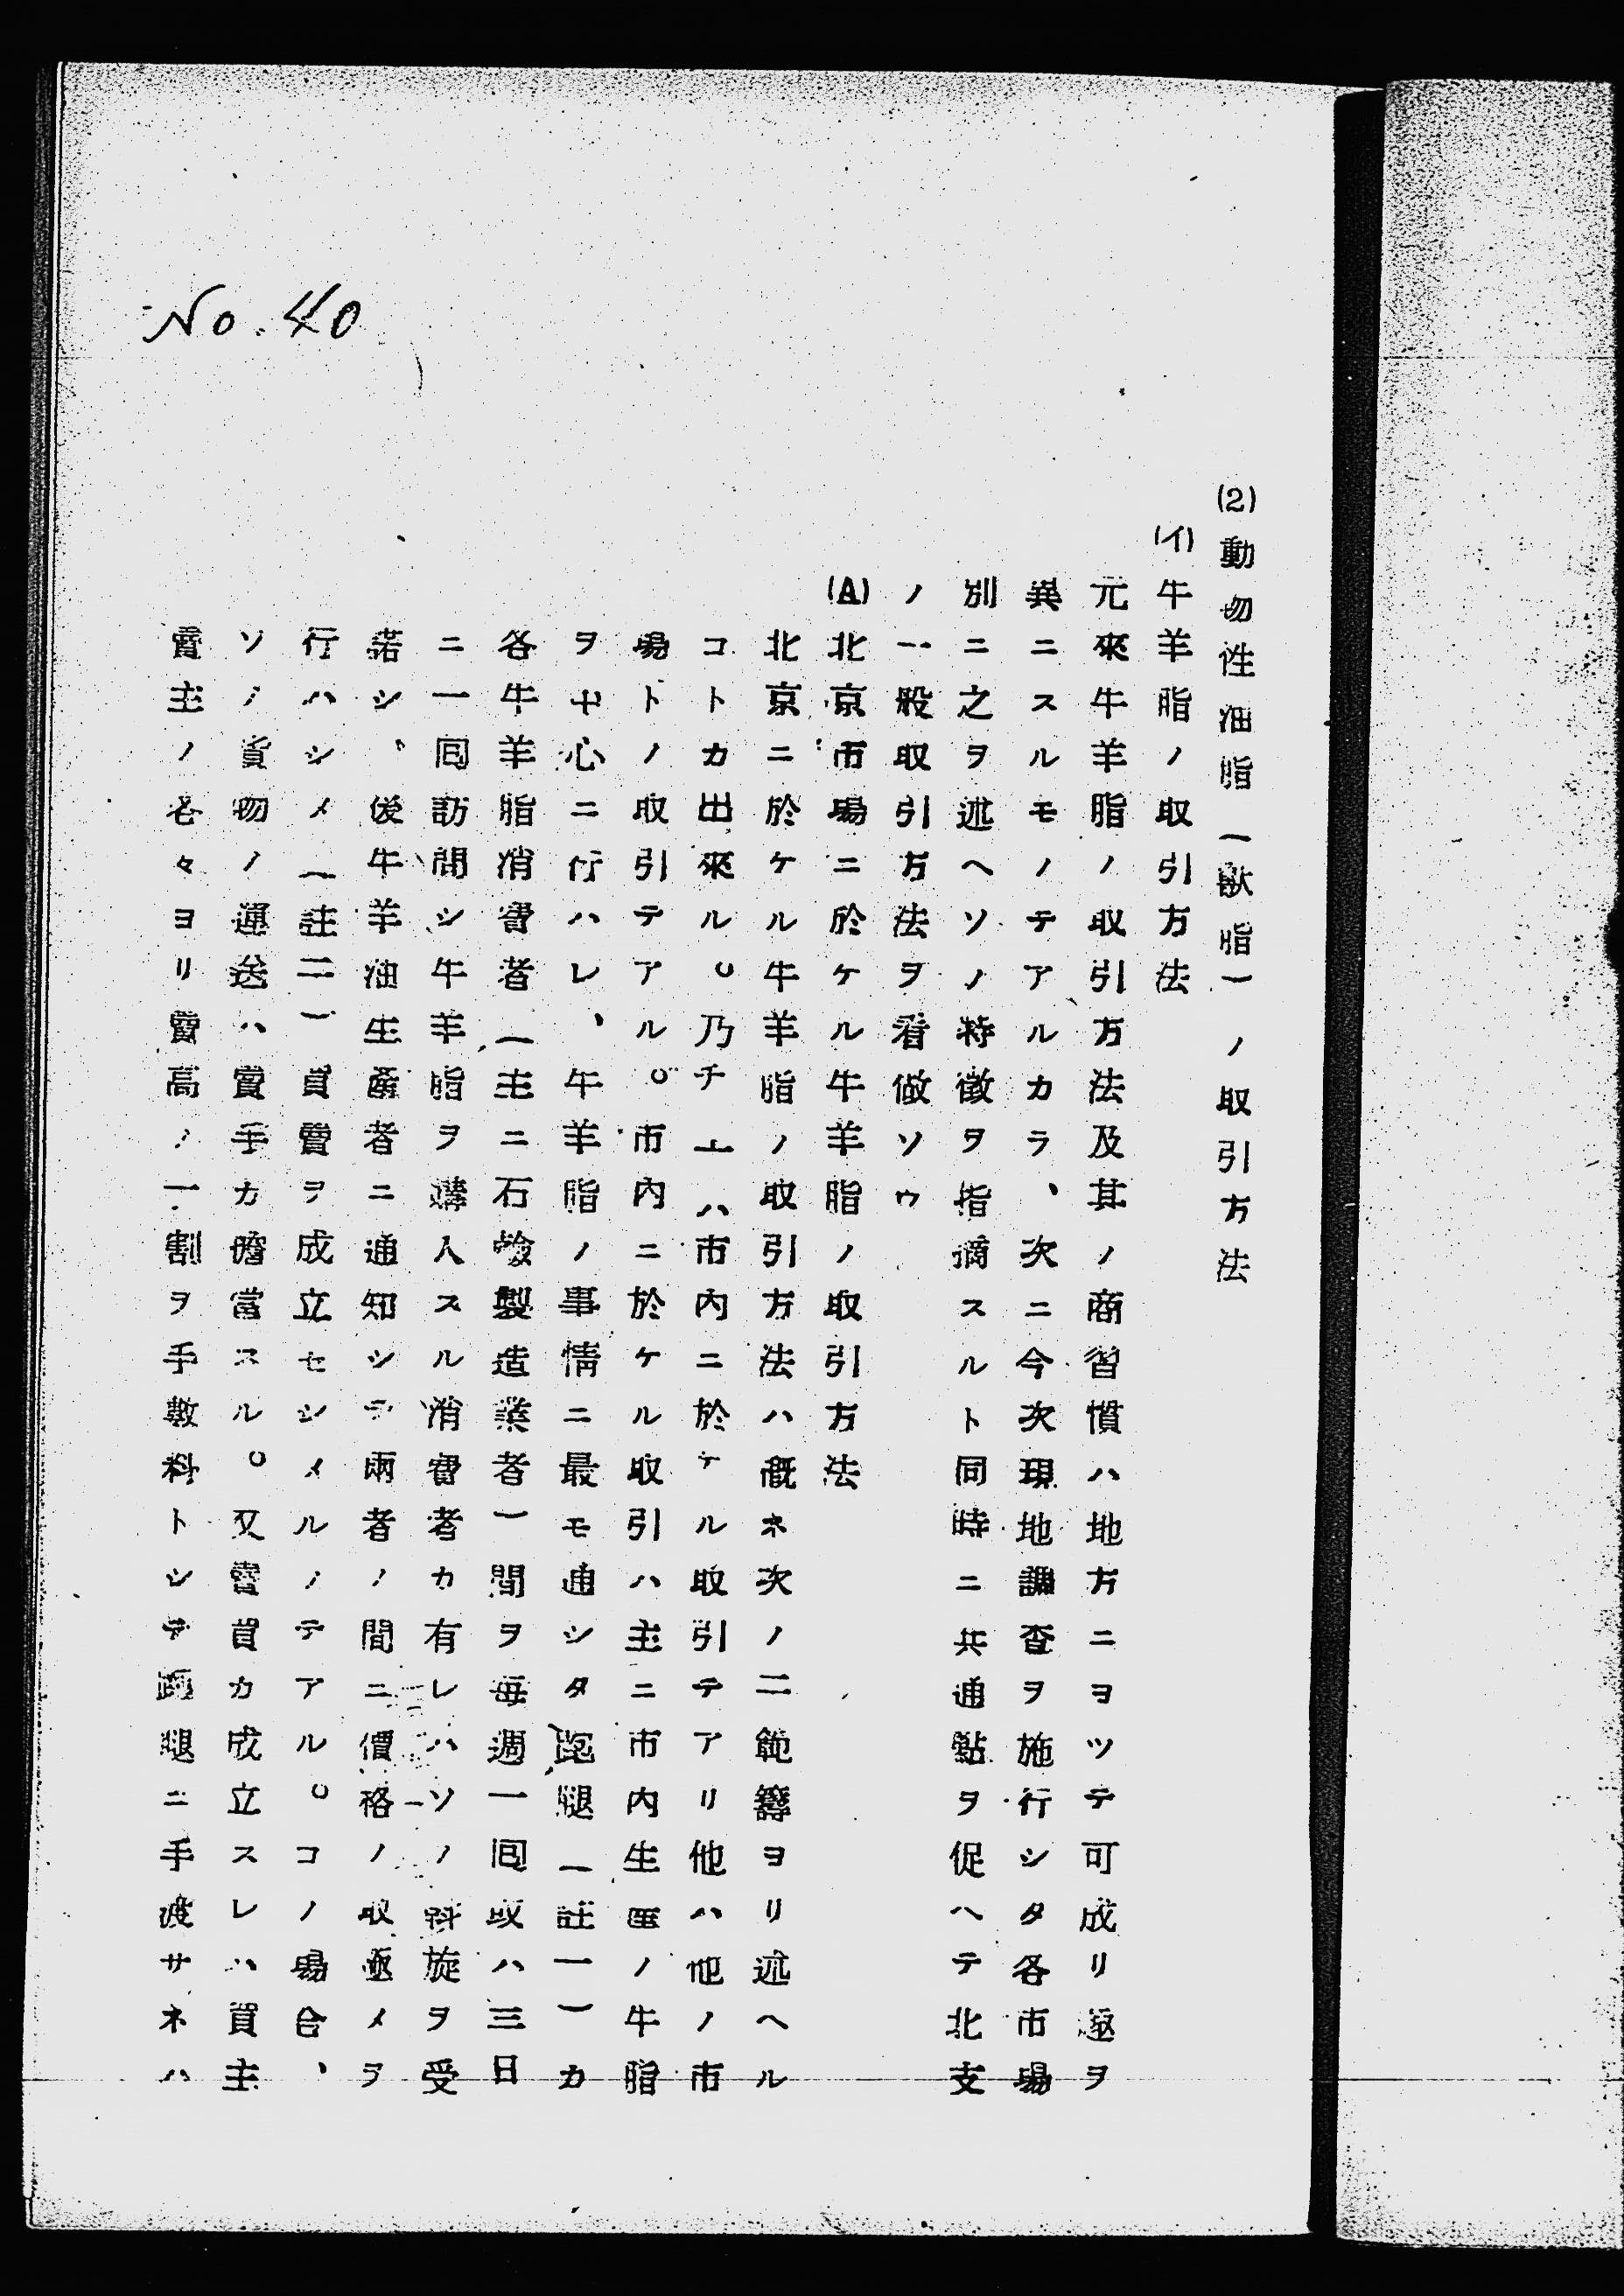 No. 40
(2)動物性油脂(獸脂)ノ取引方法
(イ)牛羊脂ノ取引方法
元來牛羊脂ノ取引方法及其ノ商習慣ハ地方ニヨツテ可成リ趣ヲ
異ニスルモノテアルカラ、次ニ今次現地調査ヲ施行シタ各市場
別ニ之ヲ述ヘソノ特徵ヲ指摘スルト同時ニ共通點ヲ促ヘテ北支
ノ一般取引方法ヲ看做ソウ
(A)北京市場ニ於ケル牛羊脂ノ取引方法
北京ニ於ケル牛羊脂ノ取引方法ハ概ネ次ノ二範籌ヨリ述ヘル
コトカ出來ル。乃チ一ハ市內ニ於ケル取引テアリ他ハ他ノ市
場トノ取引テアル。市內ニ於ケル取引ハ主ニ市內生產ノ牛脂
ヲ中心ニ行ハレ、牛羊脂ノ事情ニ最モ通シタ跑腿(註一)カ
各牛羊脂消費者(主ニ石鹼製造業者)間ヲ每週一回或ハ三日
ニ一回訪問シ牛羊脂ヲ購入スル消費者カ有レハソノ斡旋ヲ受
諾シ、後牛羊油生產者ニ通知シテ兩者ノ間ニ價格ノ取極メヲ
行ハシメ(註二)賣買ヲ成立セシメルノテアル。コノ場合、
ソノ貨物ノ運送ハ賣手カ擔當スル。又賣買カ成立スレハ買主
賣主ノ各々ヨリ賣高ノ一割ヲ手數料トシテ跑腿ニ手渡サネハ